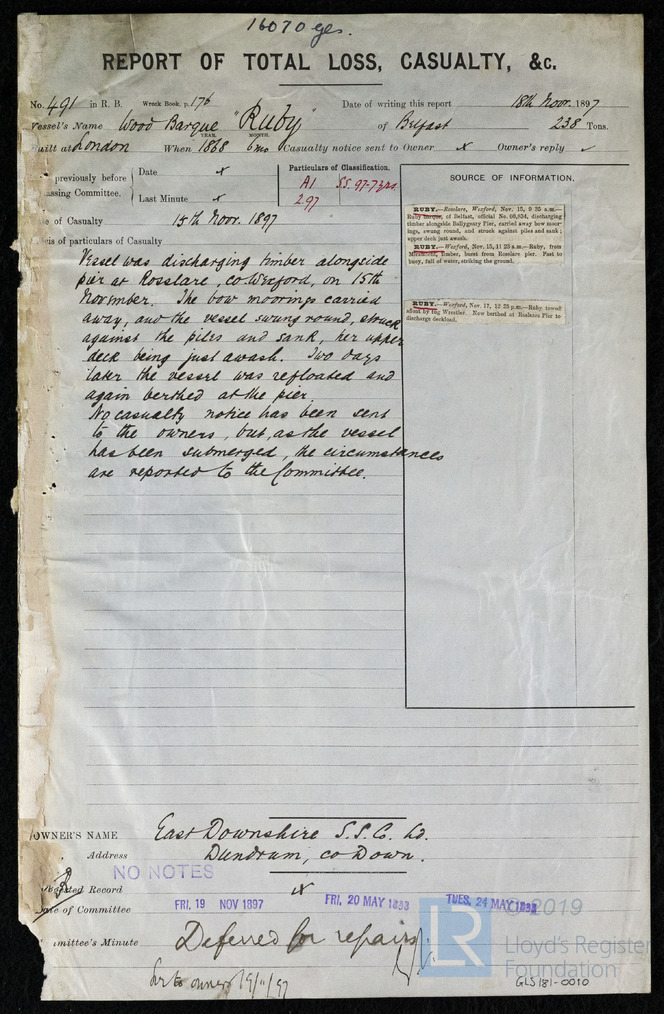 16070 ges.
REPORT OF TOTAL LOSS, CASUALTY, &c.
No. 491 in R. B. Wreck Book, p. 176 Date of writing this report 18th Novr. 1897
Vessel's Name Wood Barque "Ruby" of Belfast 238 Tons.
YEAR. MONTH.
uilt at London When 1868 6mo Casualty notice sent to Owner x Owner's reply
previously before Date x Particulars of Classification. SOURCE OF INFORMATION.
assing Committee. Last Minute x A1 S.S. 97-7yrs
2.97
e of Casualty 15th Novr. 1897
sis of particulars of Casualty
Vessel was discharging timber alongside
pier at Rosslare, co Wexford, on 15th
November. The bow moorings carried
away, and the vessel swung round, struck
against the piles and sank, her upper
deck being just awash. Two days
later the vessel was refloated and
again berthed at the pier.
No casualty notice has been sent
to the owners, but, as the vessel
has been submerged, the circumstances
are reported to the Committee.
RUBY.—Rosslare, Wexford, Nov. 15, 9 35 a.m.—
Ruby barque, of Belfast, official No. 60,834, discharging
timber alongside Ballygeary Pier, carried away bow moor-
ings, swung round, and struck against piles and sank;
upper deck just awash.
RUBY.—Wexford, Nov. 15, 11 23 a.m.—Ruby, from
Miramichi, timber, burst from Rosslare pier. Fast to
buoy, full of water, striking the ground.
RUBY.—Wexford, Nov. 17, 12 25 p.m.—Ruby towed
afloat by tug Wrestler. Now berthed at Rosslare Pier to
discharge deckload.
OWNER'S NAME East Downshire S.S. Co. Ld.
Address Dundrum, co Down.
NO NOTES
Record x
ate of Committee FRI. 19 NOV 1897 FRI. 20 MAY 1898 TUES. 24 MAY 1898
mmittee's Minute Deferred for repairs
to owners 19/11/97
LR
© 2019
Lloyd's Register
Foundation
GLS181-0010